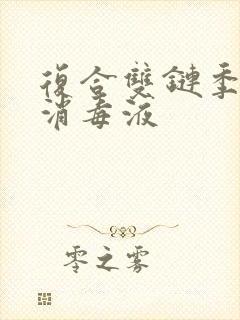 復合雙鏈季
消毒液
零之霧